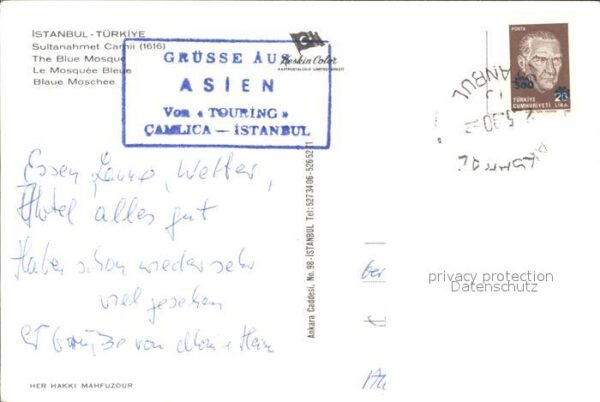 İSTANBUL - TÜRKİYE
Sultanahmet Camii (1616)
The Blue Mosque
Le Mosquée Bleue
Blaue Moschee
GRÜSSE AUS
ASIEN
Von « TOURING »
ÇAMLICA — İSTANBUL
Keskin Color
POSTA
500
20
TÜRKİYE
CUMHURİYETİ LİRA
Essen, Wetter,
Hotel alles gut
Haben schon wieder sehr
viel gesehen
Grüße von
Ankara Caddesi, No. 98 - İSTANBUL Tel: 5273406-5265271
privacy protection
Datenschutz
HER HAKKI MAHFUZDUR